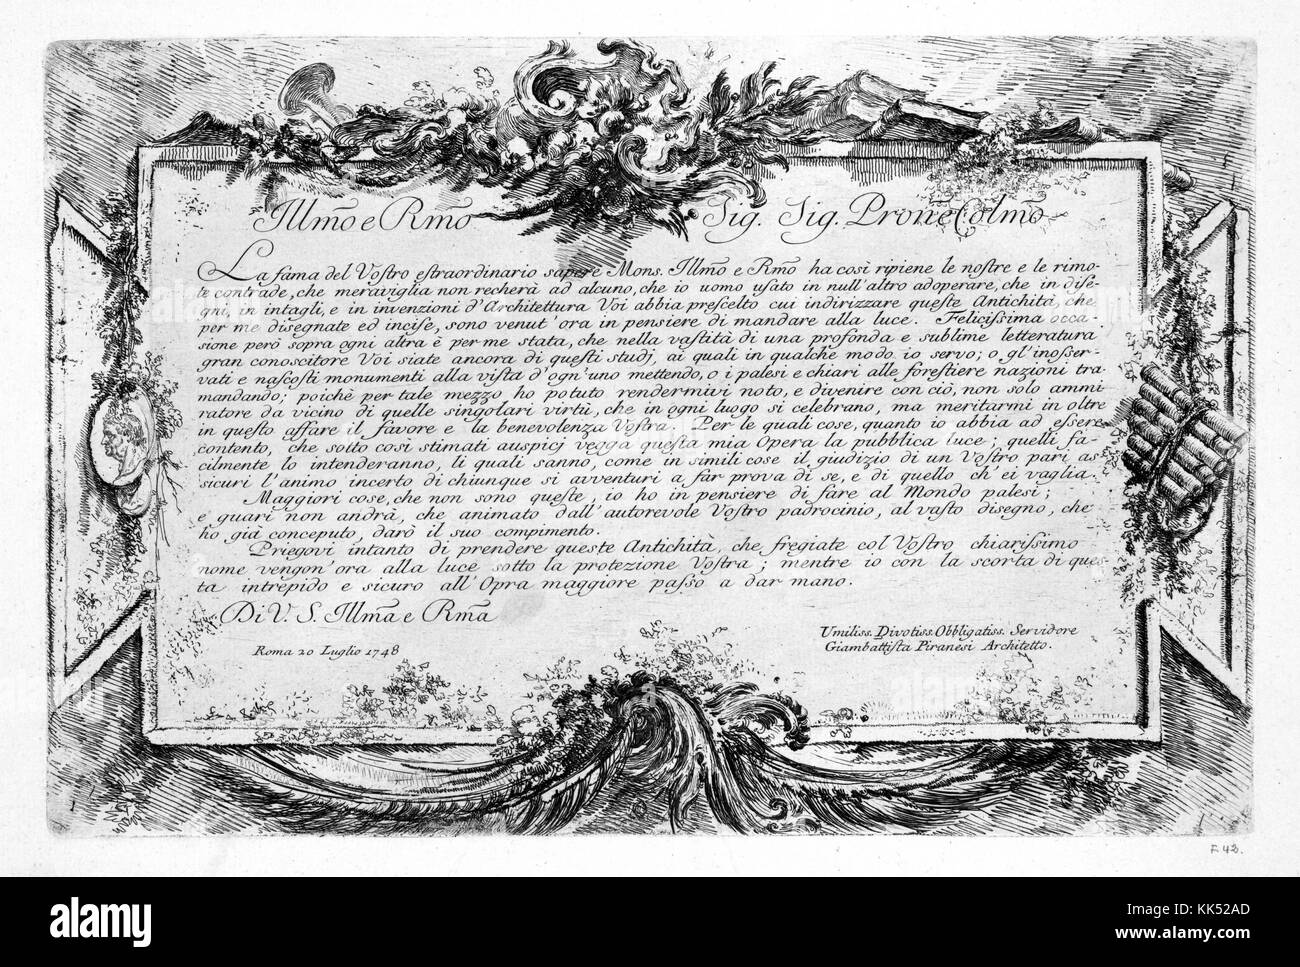 Illm̃o e Rm̃o Sig. Sig. Prone Colm̃o
La fama del Vostro estraordinario sapere Mons. Illm̃o e Rm̃o ha così ripiene le nostre e le rimo-
te contrade, che meraviglia non recherà ad alcuno, che io uomo usato in null'altro adoperare, che in dise-
gni, in intagli, e in invenzioni d'Architettura Voi abbia prescelto cui indirizzare queste Antichità, che
per me disegnate ed incise, sono venut'ora in pensiere di mandare alla luce. Felicissima occa-
sione però sopra ogni altra è per me stata, che nella vastità di una profonda e sublime letteratura
gran conoscitore Voi siate ancora di questi studj, ai quali in qualche modo io servo; o gl'inosser-
vati e nascosti monumenti alla vista d'ogn'uno mettendo, o i palesi e chiari alle forestiere nazioni tra-
mandando; poichè per tale mezzo ho potuto rendermivi noto, e divenire con ciò, non solo ammi-
ratore da vicino di quelle singolari virtù, che in ogni luogo si celebrano, ma meritarmi in oltre
in questo affare il favore e la benevolenza Vostra. Per le quali cose, quanto io abbia ad essere
contento, che sotto così stimati auspicj vegga questa mia Opera la pubblica luce; quelli fa-
cilmente lo intenderanno, li quali sanno, come in simili cose il giudizio di un Vostro pari as-
sicuri l'animo incerto di chiunque si avventuri a far prova di se, e di quello ch'ei vaglia.
Maggiori cose, che non sono queste, io ho in pensiere di fare al Mondo palesi;
e guari non andrà, che animato dall'autorevole Vostro padrocinio, al vasto disegno, che
ho già conceputo, darò il suo compimento.
Priegovi intanto di prendere queste Antichità, che fregiate col Vostro chiarissimo
nome vengon'ora alla luce sotto la protezione Vostra; mentre io con la scorta di ques-
ta intrepido e sicuro all'Opra maggiore passo a dar mano.
Di V. S. Illm̃a e Rm̃a
Umiliss. Divotiss. Obbligatiss. Servidore
Roma 20 Luglio 1748 Giambattista Piranesi Architetto.
F. 43.
alamy
Image ID: KK52AD
www.alamy.com